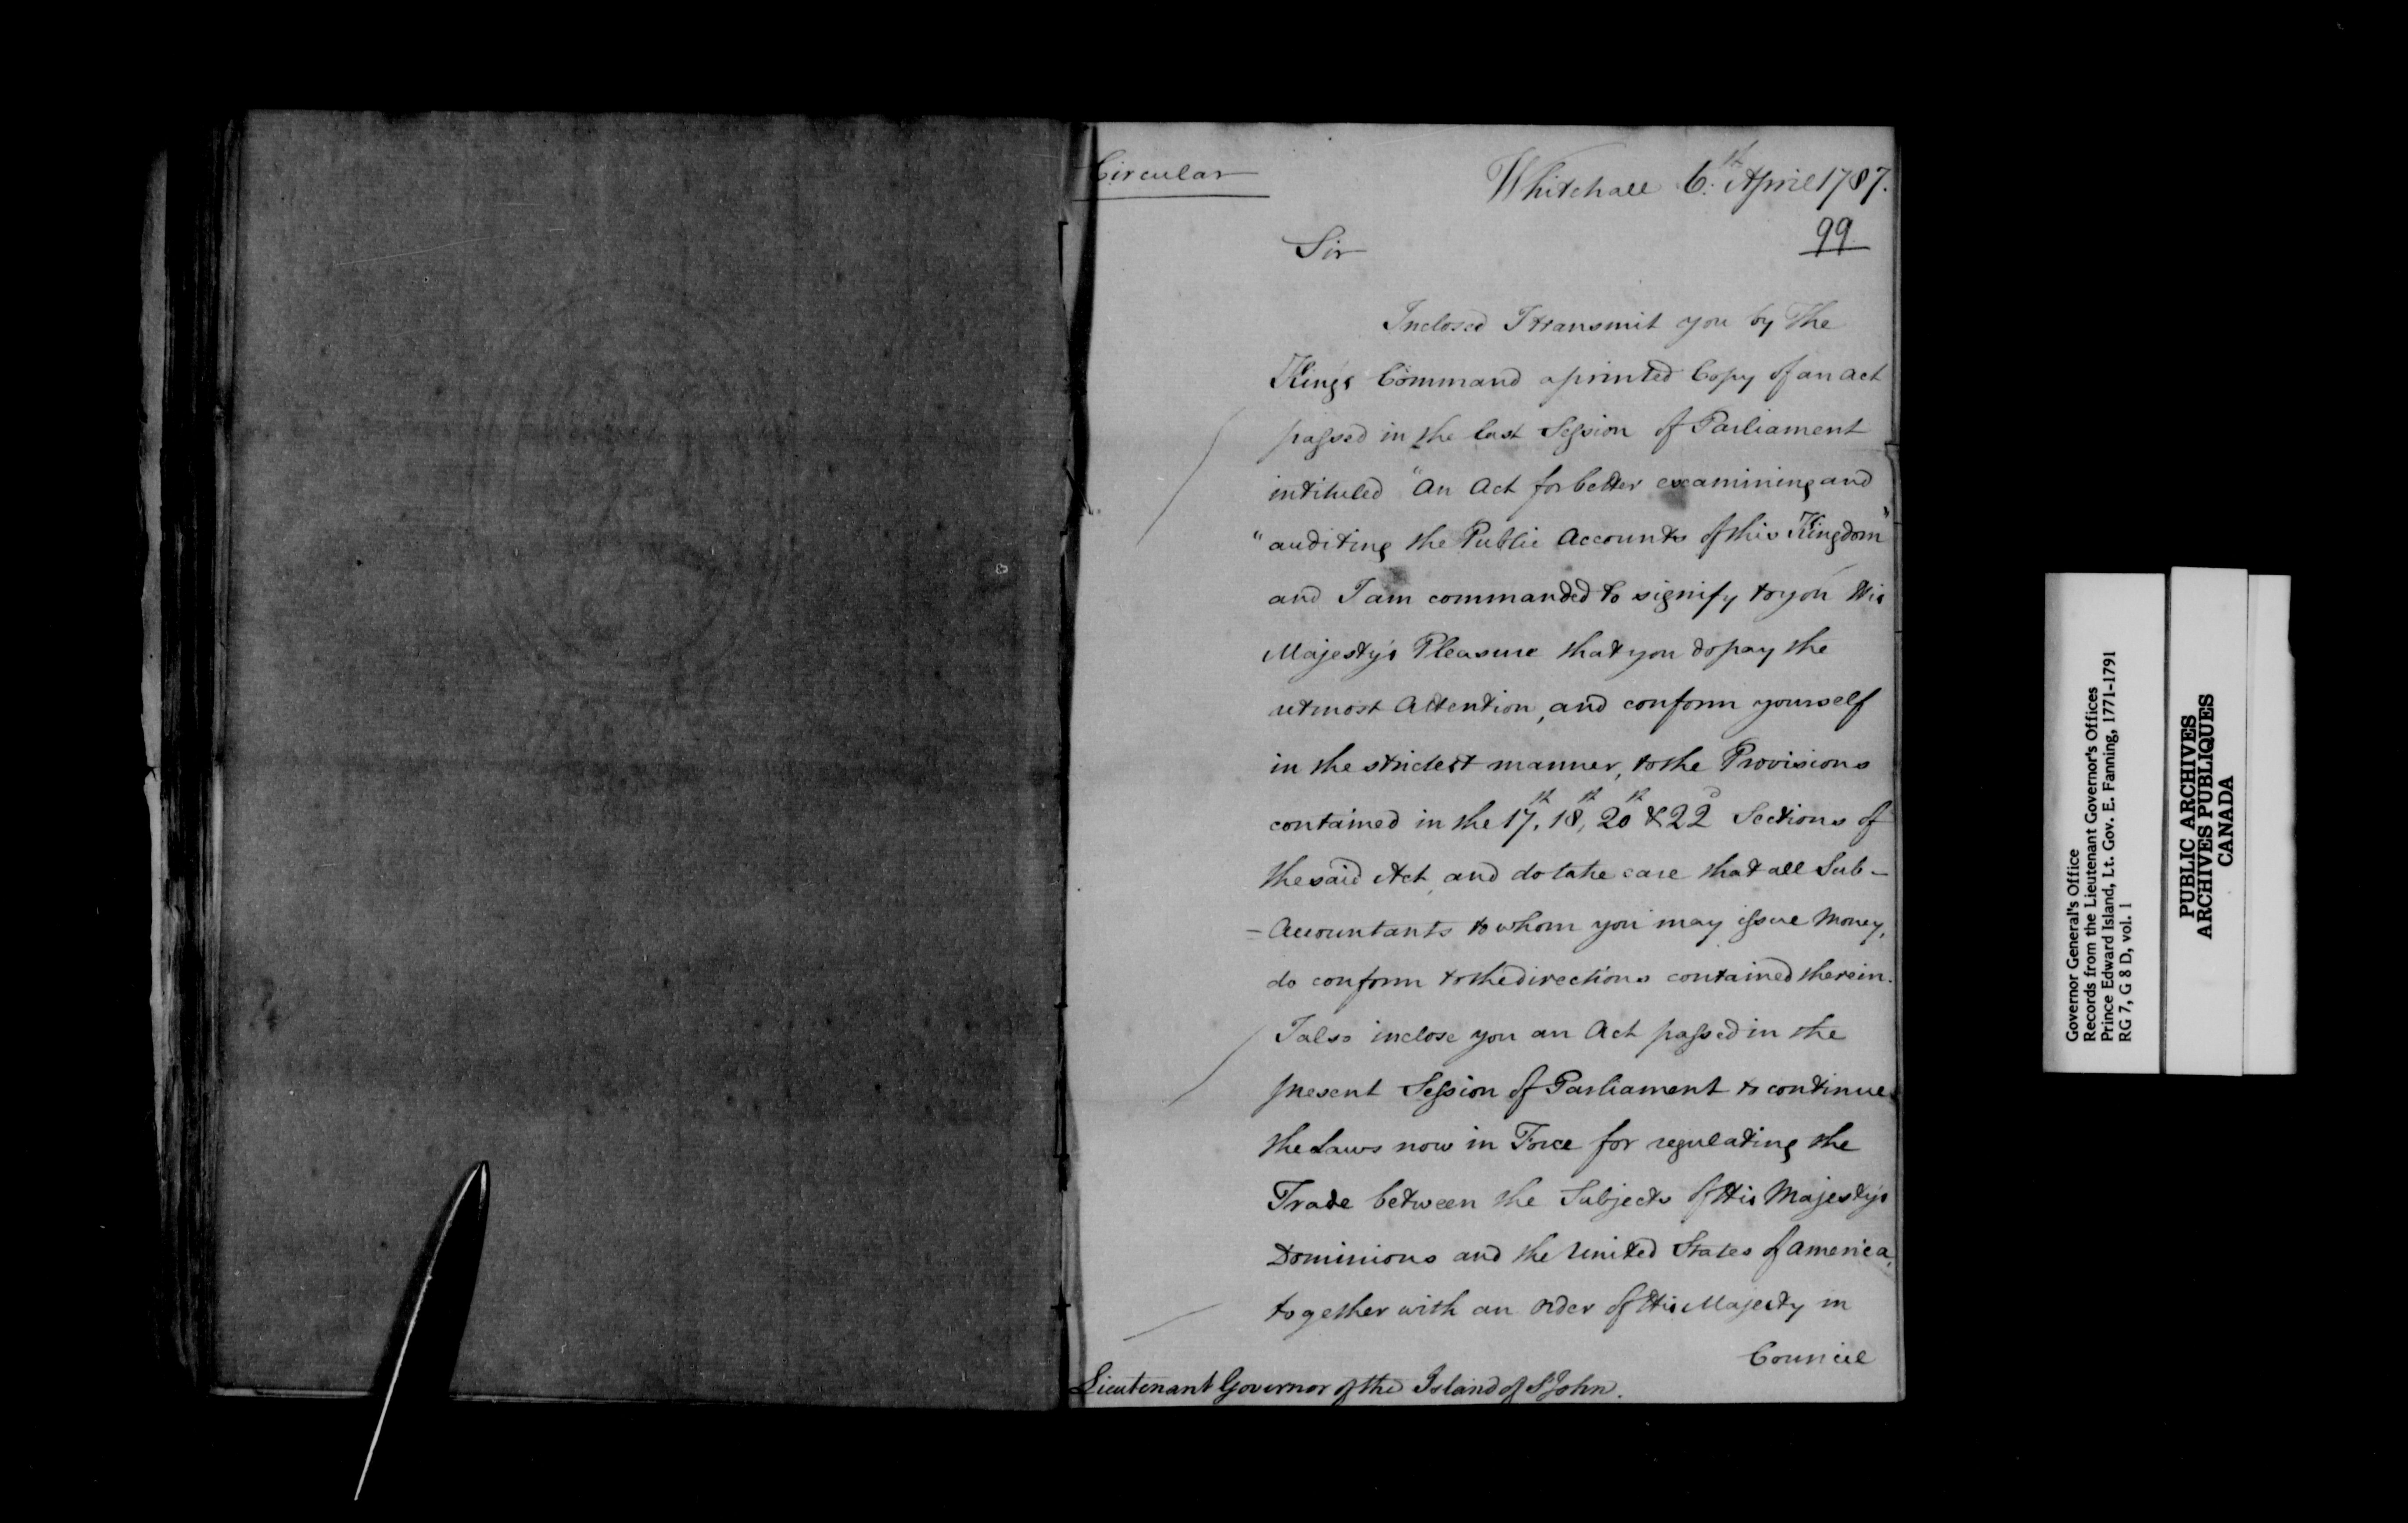 Circular
Whitehall 6.th April 1787.
99
Sir
Inclosed I transmit you by The
King's Command a printed Copy of an Act
passed in the last Session of Parliament
intituled "An Act for better examining and
"auditing the Public Accounts of this Kingdom"
and I am commanded to signify to you His
Majesty's Pleasure that you do pay the
utmost Attention, and conform yourself
in the strictest manner, to the Provisions
contained in the 17th, 18th, 20th & 22d Sections of
the said Act, and do take care that all Sub-
=Accountants to whom you may issue Money,
do conform to the directions contained therein.
I also inclose you an Act passed in the
present Session of Parliament to continue
the Laws now in Force for regulating the
Trade between the Subjects of His Majesty's
Dominions and the United States of America,
together with an Order of His Majesty in
Council
Lieutenant Governor of the Island of St John.
Governor General's Office
Records from the Lieutenant Governor's Offices
Prince Edward Island, Lt. Gov. E. Fanning, 1771-1791
RG 7, G 8 D, vol. 1
PUBLIC ARCHIVES
ARCHIVES PUBLIQUES
CANADA